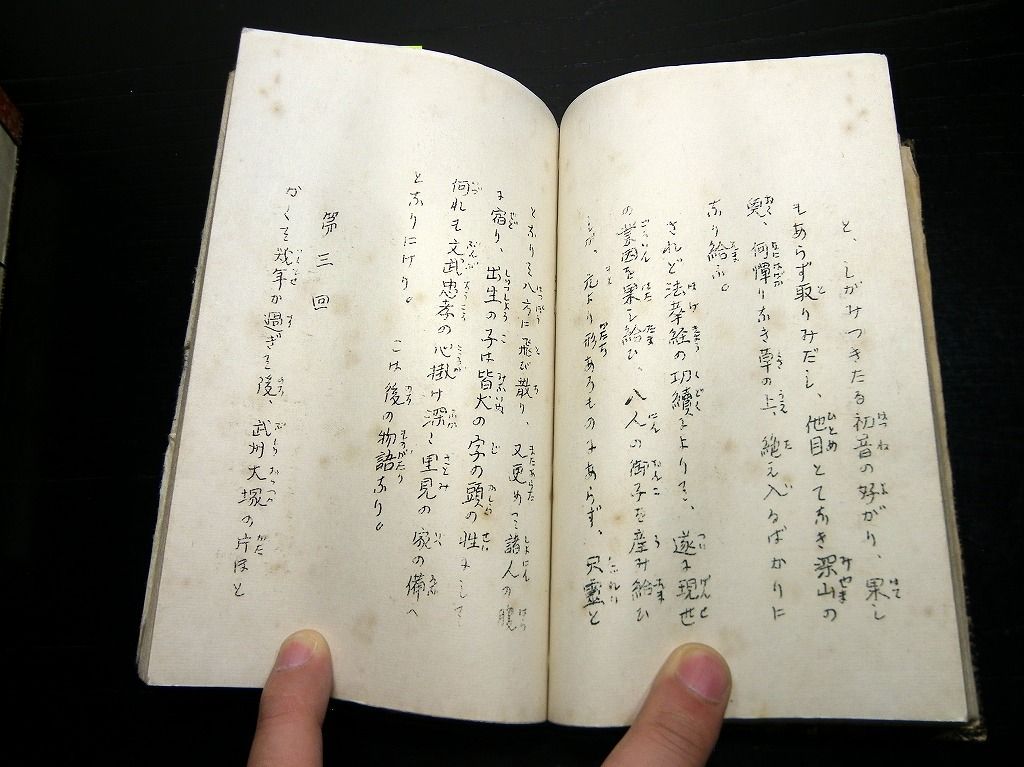 と、しがみつきたる初音の好がり、果し
もあらず取りみだし、他目とてなき深山の
奥、何憚りなき草の上、絶え入るばかりに
なり給ふ。
されど法華経の功績によりて、遂に現世
の業因を果し給ひ、八人の御子を産み給ひ
しが、元より形あるものにあらず、只霊と
となりて八方に飛び散り、又更めて諸人の腹
に宿り、出生の子は皆犬の字の頭の姓にして
何れも文武忠孝の心掛け深く里見の家の備へ
となりにけり。こは後の物語なり。
第三回
かくて幾年か過ぎて後、武州大塚の片ほと